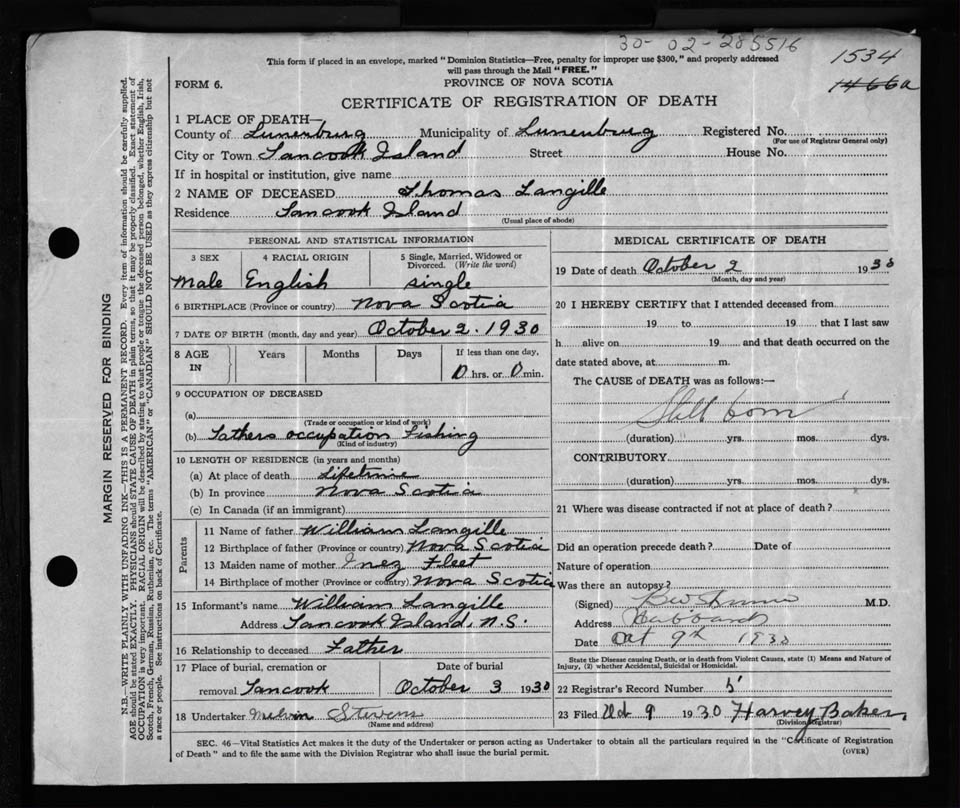 30-02-285516
This form if placed in an envelope, marked "Dominion Statistics—Free, penalty for improper use $300," and properly addressed
will pass through the Mail "FREE."
1534
1466a
FORM 6.
PROVINCE OF NOVA SCOTIA
CERTIFICATE OF REGISTRATION OF DEATH
1 PLACE OF DEATH—
County of Lunenburg Municipality of Lunenburg Registered No.
(For use of Registrar General only)
City or Town Tancook Island Street House No.
If in hospital or institution, give name
2 NAME OF DECEASED Thomas Langille
Residence Tancook Island
(Usual place of abode)
PERSONAL AND STATISTICAL INFORMATION
3 SEX 4 RACIAL ORIGIN 5 Single, Married, Widowed or Divorced. (Write the word)
Male English single
6 BIRTHPLACE (Province or country) Nova Scotia
7 DATE OF BIRTH (month, day and year) October 2. 1930
8 AGE IN Years Months Days If less than one day, 0 hrs. or 0 min.
9 OCCUPATION OF DECEASED
(a)
(Trade or occupation or kind of work)
(b) Fathers occupation Fishing
(Kind of industry)
10 LENGTH OF RESIDENCE (in years and months)
(a) At place of death Lifetime
(b) In province Nova Scotia
(c) In Canada (if an immigrant)
Parents
11 Name of father William Langille
12 Birthplace of father (Province or country) Nova Scotia
13 Maiden name of mother Inez Fleet
14 Birthplace of mother (Province or country) Nova Scotia
15 Informant's name William Langille
Address Tancook Island, N.S.
16 Relationship to deceased Father
17 Place of burial, cremation or removal Tancook Date of burial October 3 1930
18 Undertaker Melvin Stevens
(Name and address)
MEDICAL CERTIFICATE OF DEATH
19 Date of death October 2 1930
(Month, day and year)
20 I HEREBY CERTIFY that I attended deceased from
19 to 19 that I last saw
h alive on 19 and that death occurred on the
date stated above, at m.
The CAUSE of DEATH was as follows:—
Still born
(duration) yrs. mos. dys.
CONTRIBUTORY
(duration) yrs. mos. dys.
21 Where was disease contracted if not at place of death?
Did an operation precede death? Date of
Nature of operation
Was there an autopsy?
(Signed) M.D.
Address Hubbards
Date Oct 9th 1930
State the Disease causing Death, or in death from Violent Causes, state (1) Means and Nature of
Injury, (2) whether Accidental, Suicidal or Homicidal.
22 Registrar's Record Number 5
23 Filed Oct 9 1930 Harvey Baker
(Division Registrar)
SEC. 46—Vital Statistics Act makes it the duty of the Undertaker or person acting as Undertaker to obtain all the particulars required in the "Certificate of Registration
of Death" and to file the same with the Division Registrar who shall issue the burial permit.
(OVER)
MARGIN RESERVED FOR BINDING
N.B.—WRITE PLAINLY WITH UNFADING INK—THIS IS A PERMANENT RECORD. Every item of information should be carefully supplied.
AGE should be stated EXACTLY. PHYSICIANS should STATE CAUSE OF DEATH in plain terms, so that it may be properly classified. Exact statement of
OCCUPATION is very important. RACIAL ORIGIN will be described by stating to what people or tongue the deceased person belonged, whether English, Irish,
Scotch, French, German, Russian, Ruthenian, etc. The terms "AMERICAN" or "CANADIAN" SHOULD NOT BE USED as they express citizenship but not
a race or people. See instructions on back of Certificate.